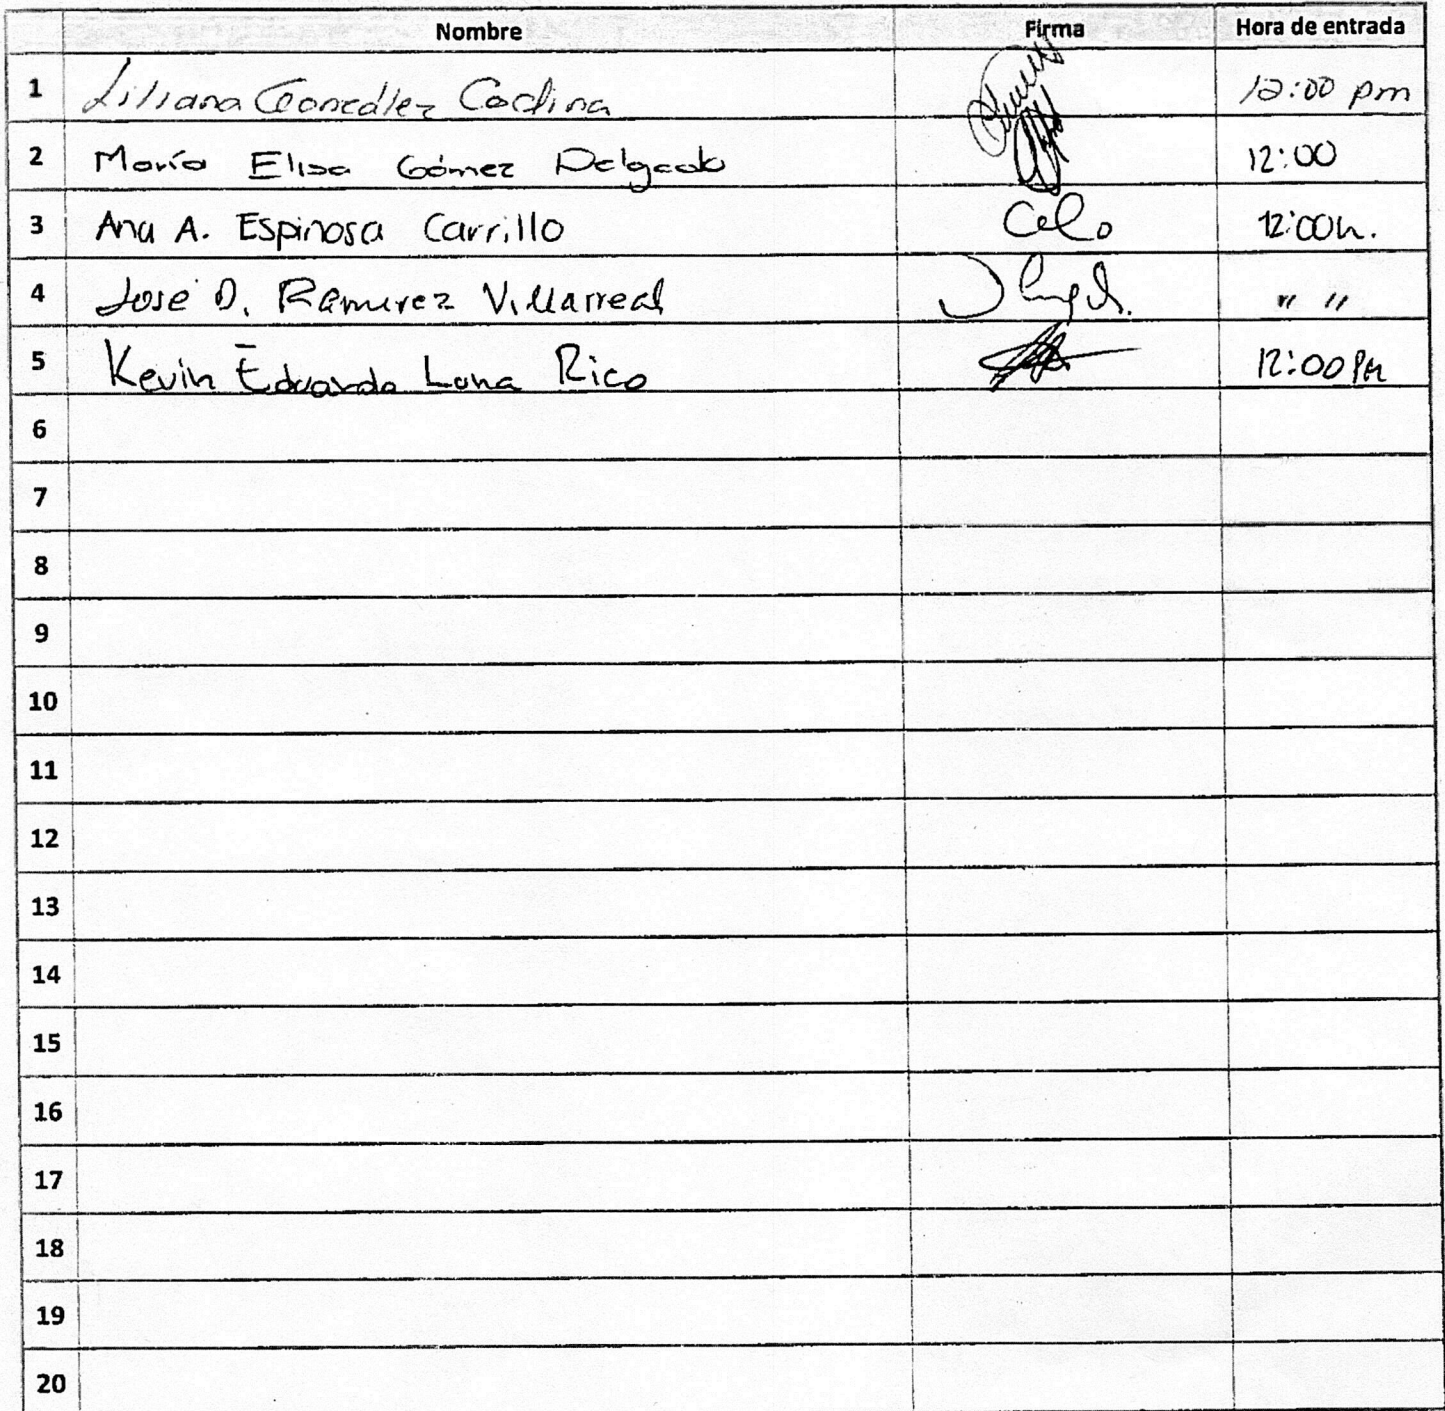 Nombre Firma Hora de entrada
1 Liliana González Codina 12:00 pm
2 María Elisa Gómez Delgado 12:00
3 Ana A. Espinosa Carrillo 12:00h.
4 José D. Ramirez Villarreal " "
5 Kevin Eduardo Luna Rico 12:00 PM
6
7
8
9
10
11
12
13
14
15
16
17
18
19
20